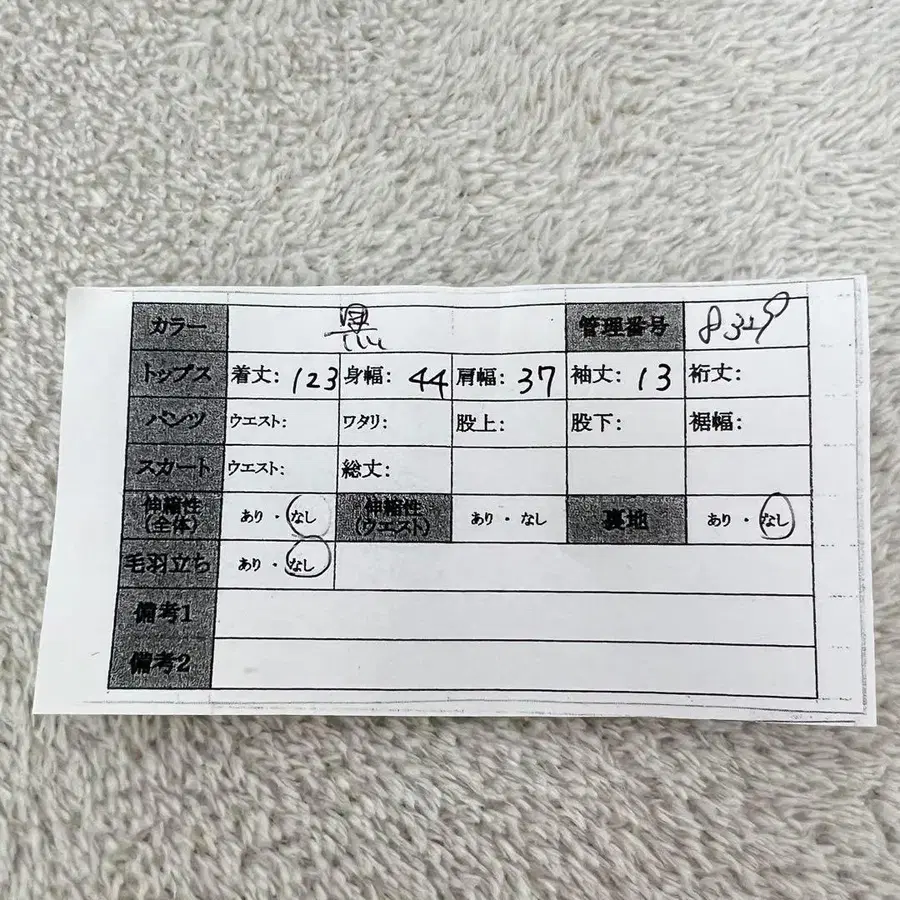 カラー 黒 管理番号 8329
トップス 着丈: 123 身幅: 44 肩幅: 37 袖丈: 13 裄丈:
パンツ ウエスト: ワタリ: 股上: 股下: 裾幅:
スカート ウエスト: 総丈:
伸縮性(全体) あり ・ なし 伸縮性(ウエスト) あり ・ なし 裏地 あり ・ なし
毛羽立ち あり ・ なし
備考1
備考2